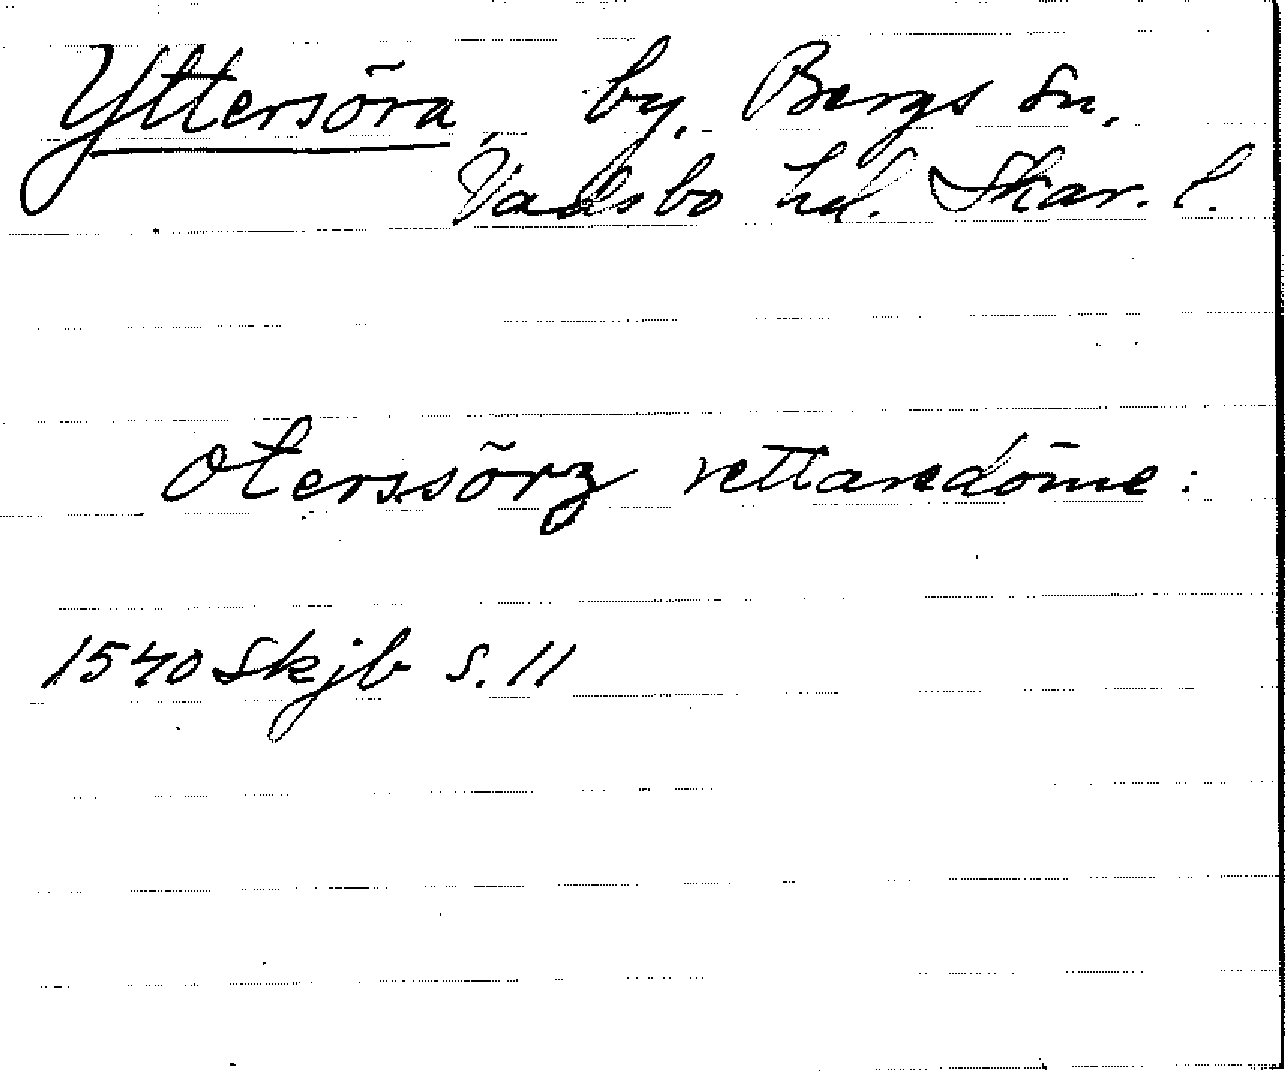 Yttersöra, by, Bergs sn,
Vadsbo hd. Skar. l.
Oterssörz rettaredöme:
1540 Skjb s. 11